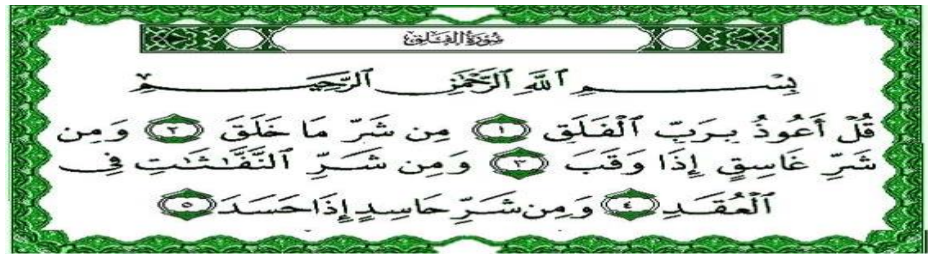 سُورَةُ الفَلَقِ
بِسْمِ ٱللَّهِ ٱلرَّحْمَٰنِ ٱلرَّحِيمِ
قُلْ أَعُوذُ بِرَبِّ ٱلْفَلَقِ ١ مِن شَرِّ مَا خَلَقَ ٢ وَمِن
شَرِّ غَاسِقٍ إِذَا وَقَبَ ٣ وَمِن شَرِّ ٱلنَّفَّٰثَٰتِ فِى
ٱلْعُقَدِ ٤ وَمِن شَرِّ حَاسِدٍ إِذَا حَسَدَ ٥